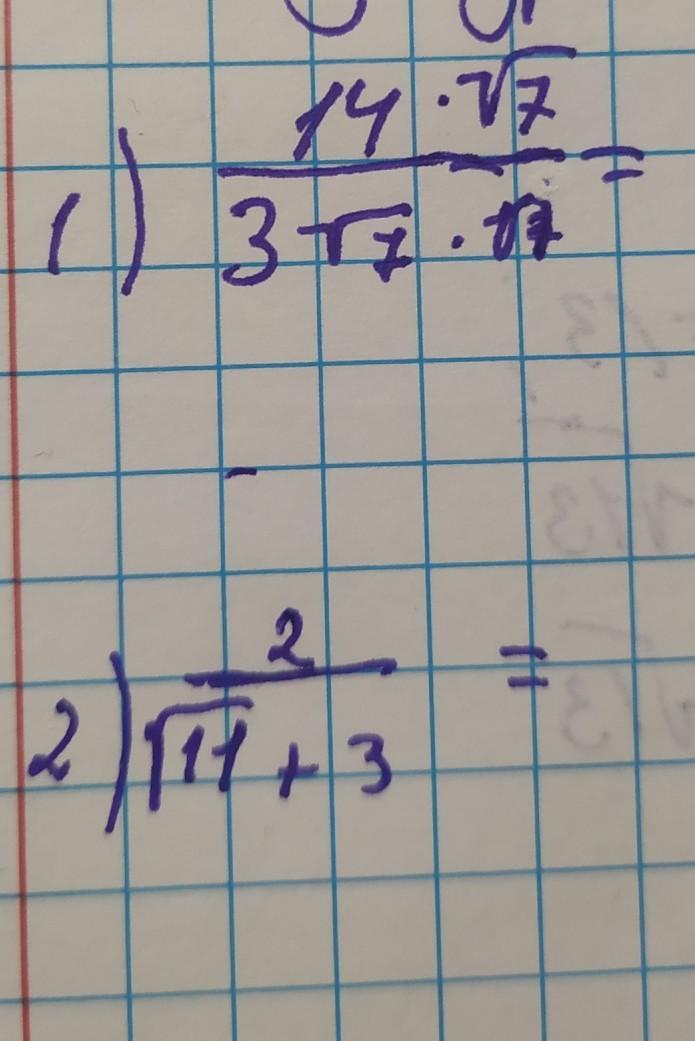 14 · √7
1) ―――― =
3√7 · √7
2
2) ―――― =
√11 + 3